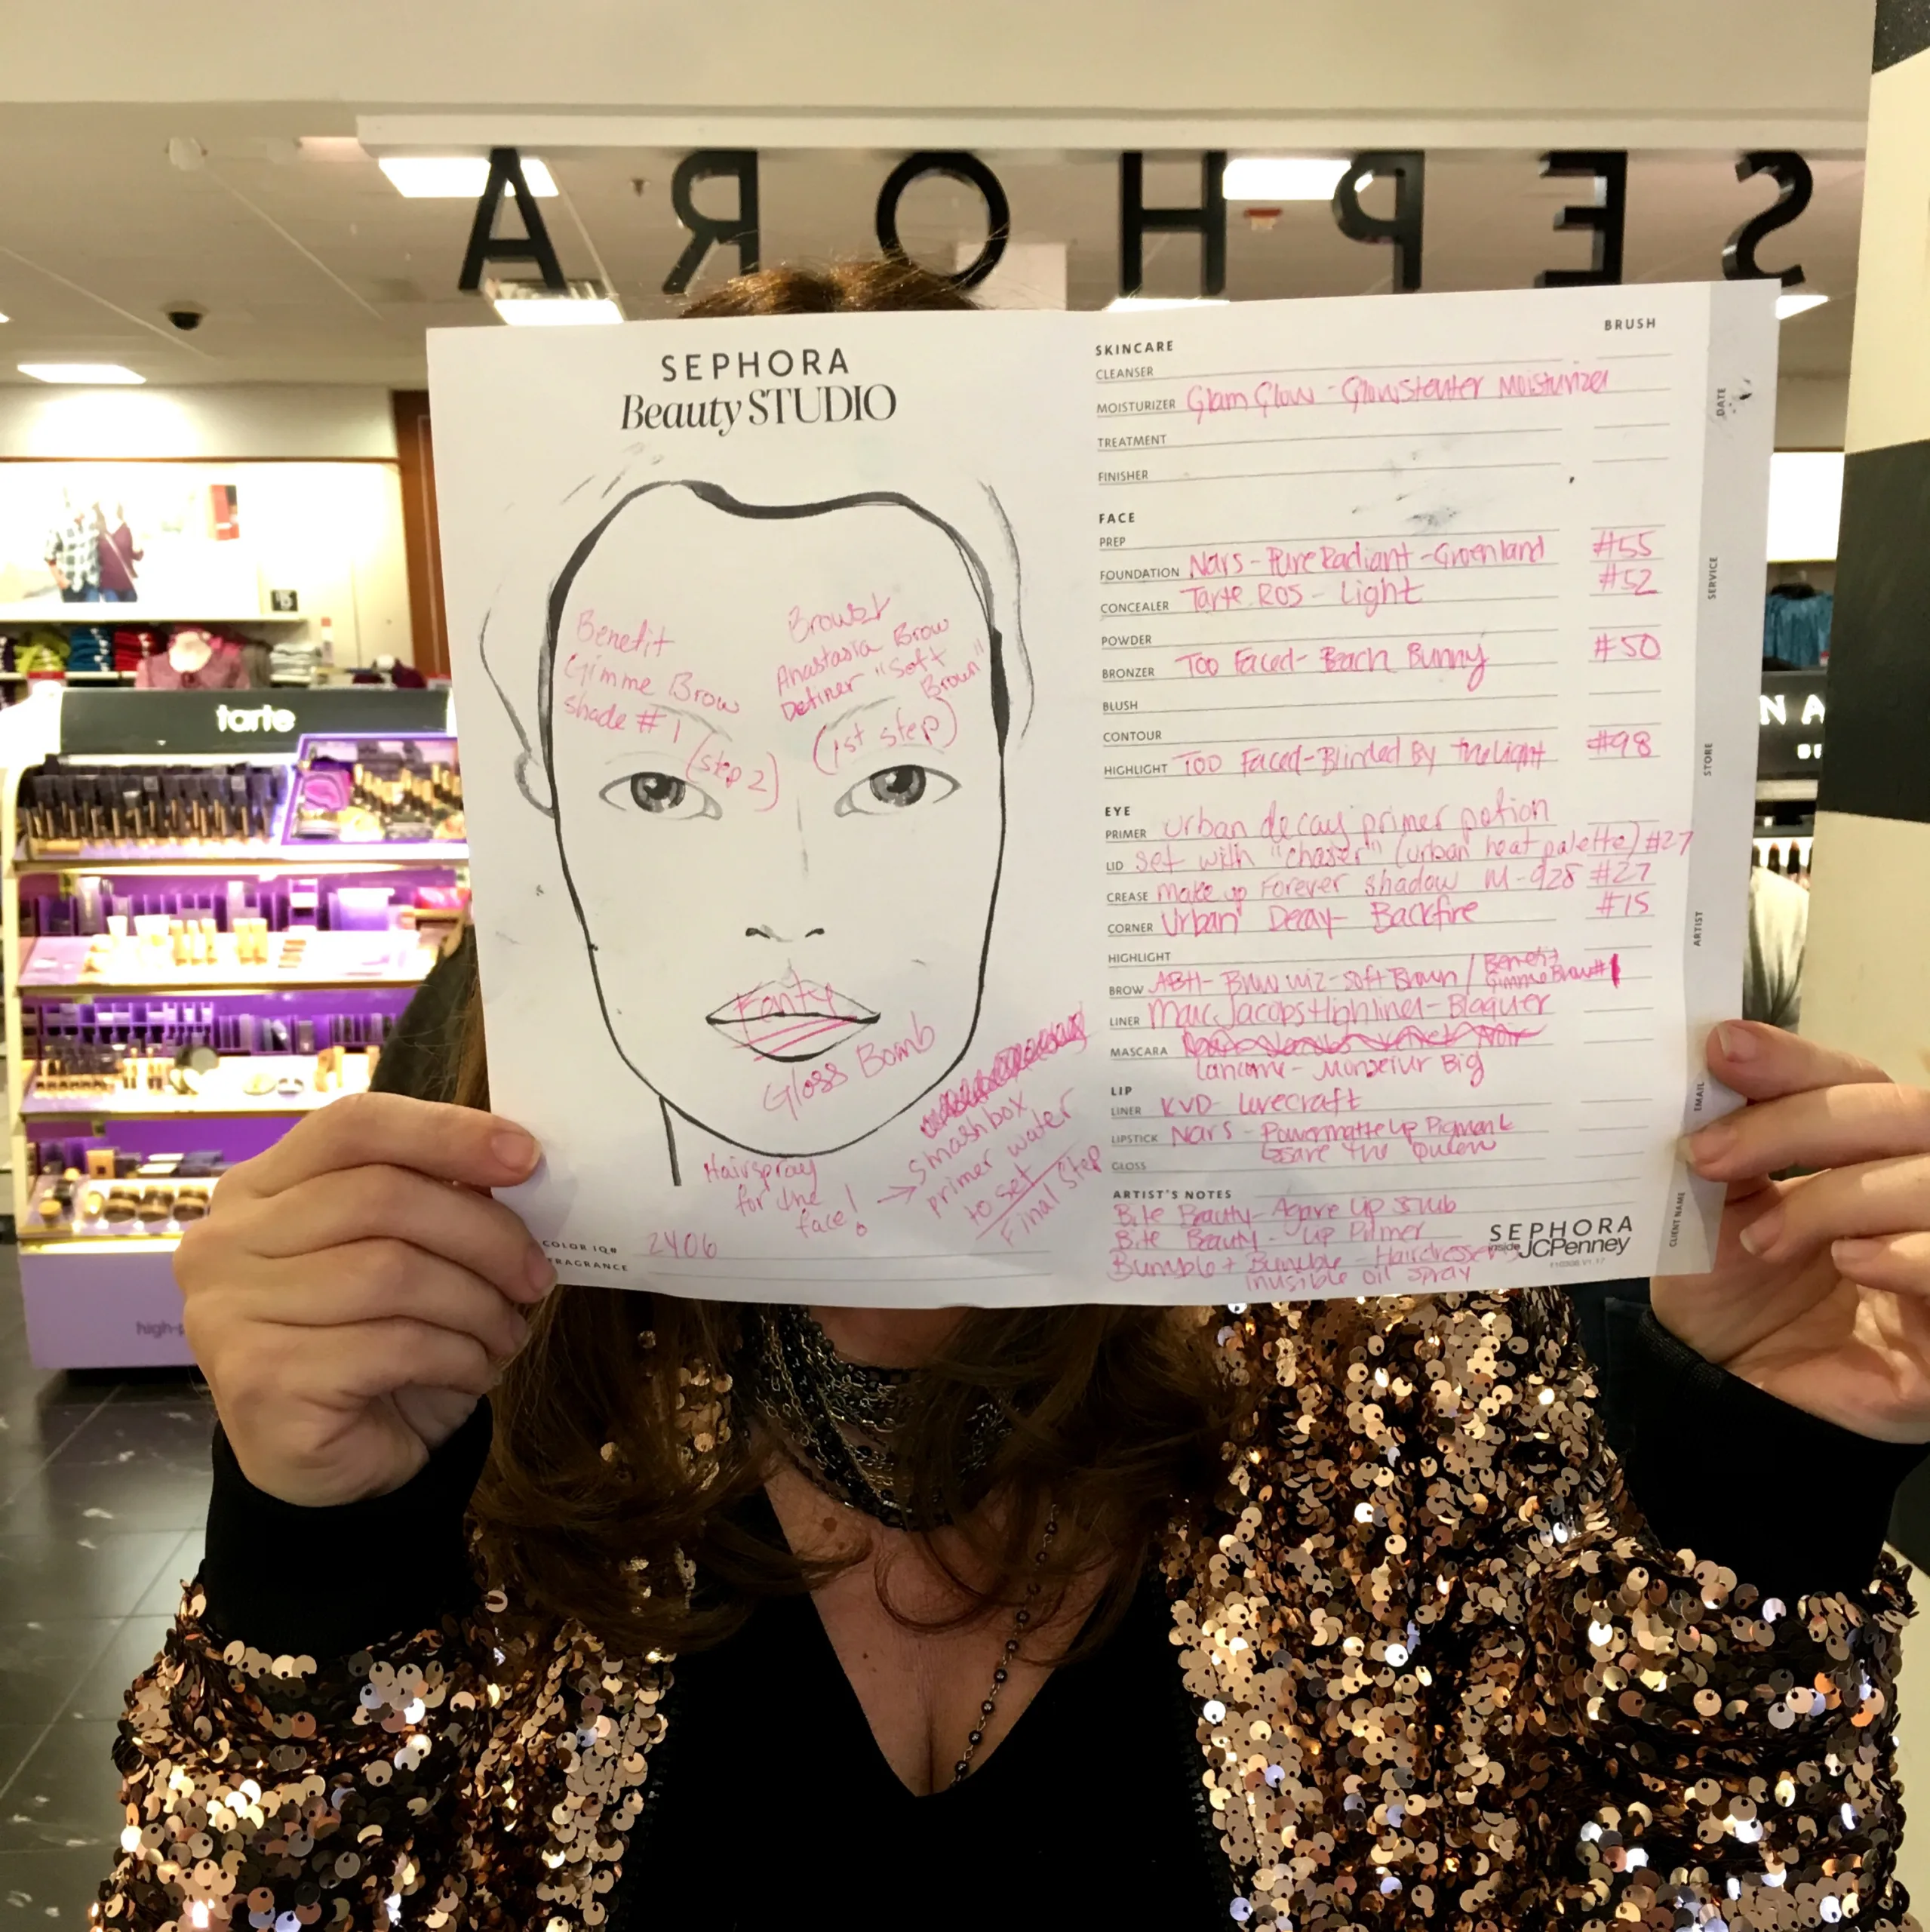 SEPHORA
SEPHORA
Beauty STUDIO
Benefit
Gimme Brow
shade #1
(step 2)
Anastasia Brow
Definer "Soft
Brown"
(1st step)
Fenty
Gloss Bomb
Hairspray
for the
face!
smashbox
primer water
to set
Final Step
COLOR IQ# 2406
FRAGRANCE
BRUSH
SKINCARE
CLEANSER
MOISTURIZER Glam Glow - Glowstarter Moisturizer
TREATMENT
FINISHER
FACE
PREP
FOUNDATION Nars - Pure Radiant - Groenland #55
CONCEALER Tarte Ros - Light #52
POWDER
BRONZER Too Faced - Beach Bunny #50
BLUSH
CONTOUR
HIGHLIGHT Too Faced - Blinded By the Light #98
EYE
PRIMER urban decay primer potion
LID set with "chaser" (urban heat palette) #27
CREASE Make up Forever shadow M-928 #27
CORNER Urban Decay - Backfire #15
HIGHLIGHT
BROW ABH - Brow wiz - soft Brown / Benefit Gimme Brow #1
LINER Marc Jacobs Highliner - Blaquer
MASCARA
Lancome - Monseiur Big
LIP
LINER KVD - Lovecraft
LIPSTICK Nars - Powermatte Lip Pigment
the Queen
GLOSS
ARTIST'S NOTES
Bite Beauty - Agave Lip Scrub
Bite Beauty - Lip Primer
Bumble + Bumble - Hairdresser's
invisible oil spray
SEPHORA
inside JCPenney
DATE
SERVICE
STORE
ARTIST
EMAIL
CLIENT NAME
tarte
high-p
NA